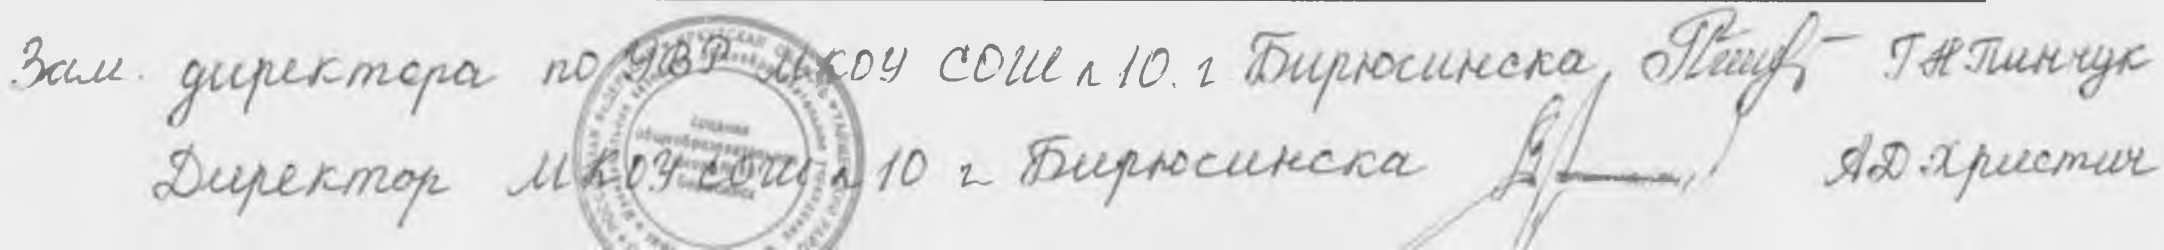 Зам. директора по УВР МКОУ СОШ №10. г Бирюсинска, Г Н Пинчук
Директор МКОУ СОШ №10 г Бирюсинска А Д Христич